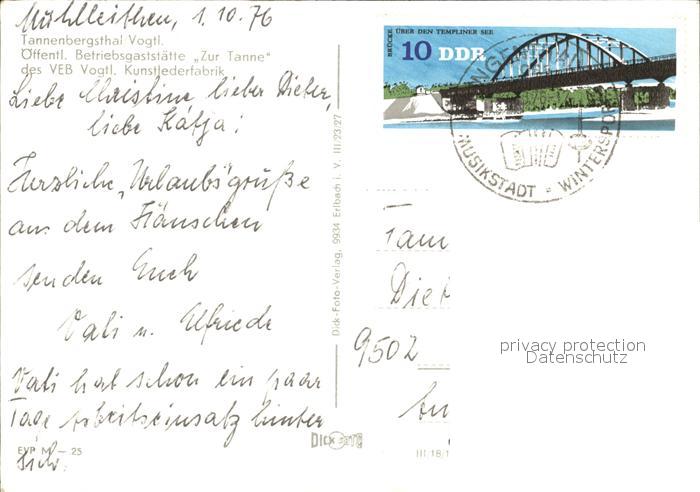 Mühlleithen, 1.10.76
Tannenbergsthal Vogtl.
Öffentl. Betriebsgaststätte „Zur Tanne"
des VEB Vogtl. Kunstlederfabrik
Liebe Christine, lieber Dieter,
liebe Katja!
Herzliche „Urlaubs"grüße
aus dem Häuschen
senden Euch
Vati u. Elfriede
Vati hat schon ein paar
Tage Arbeitseinsatz hinter
sich.
EVP M –.25
Dick-Foto-Verlag, 9934 Erlbach i. V. III/23/27
DICK FOTO
BRÜCKE ÜBER DEN TEMPLINER SEE
10 DDR
MUSIKSTADT - WINTERSPOR
Fam
Diet
9502
III/18/1
privacy protection
Datenschutz